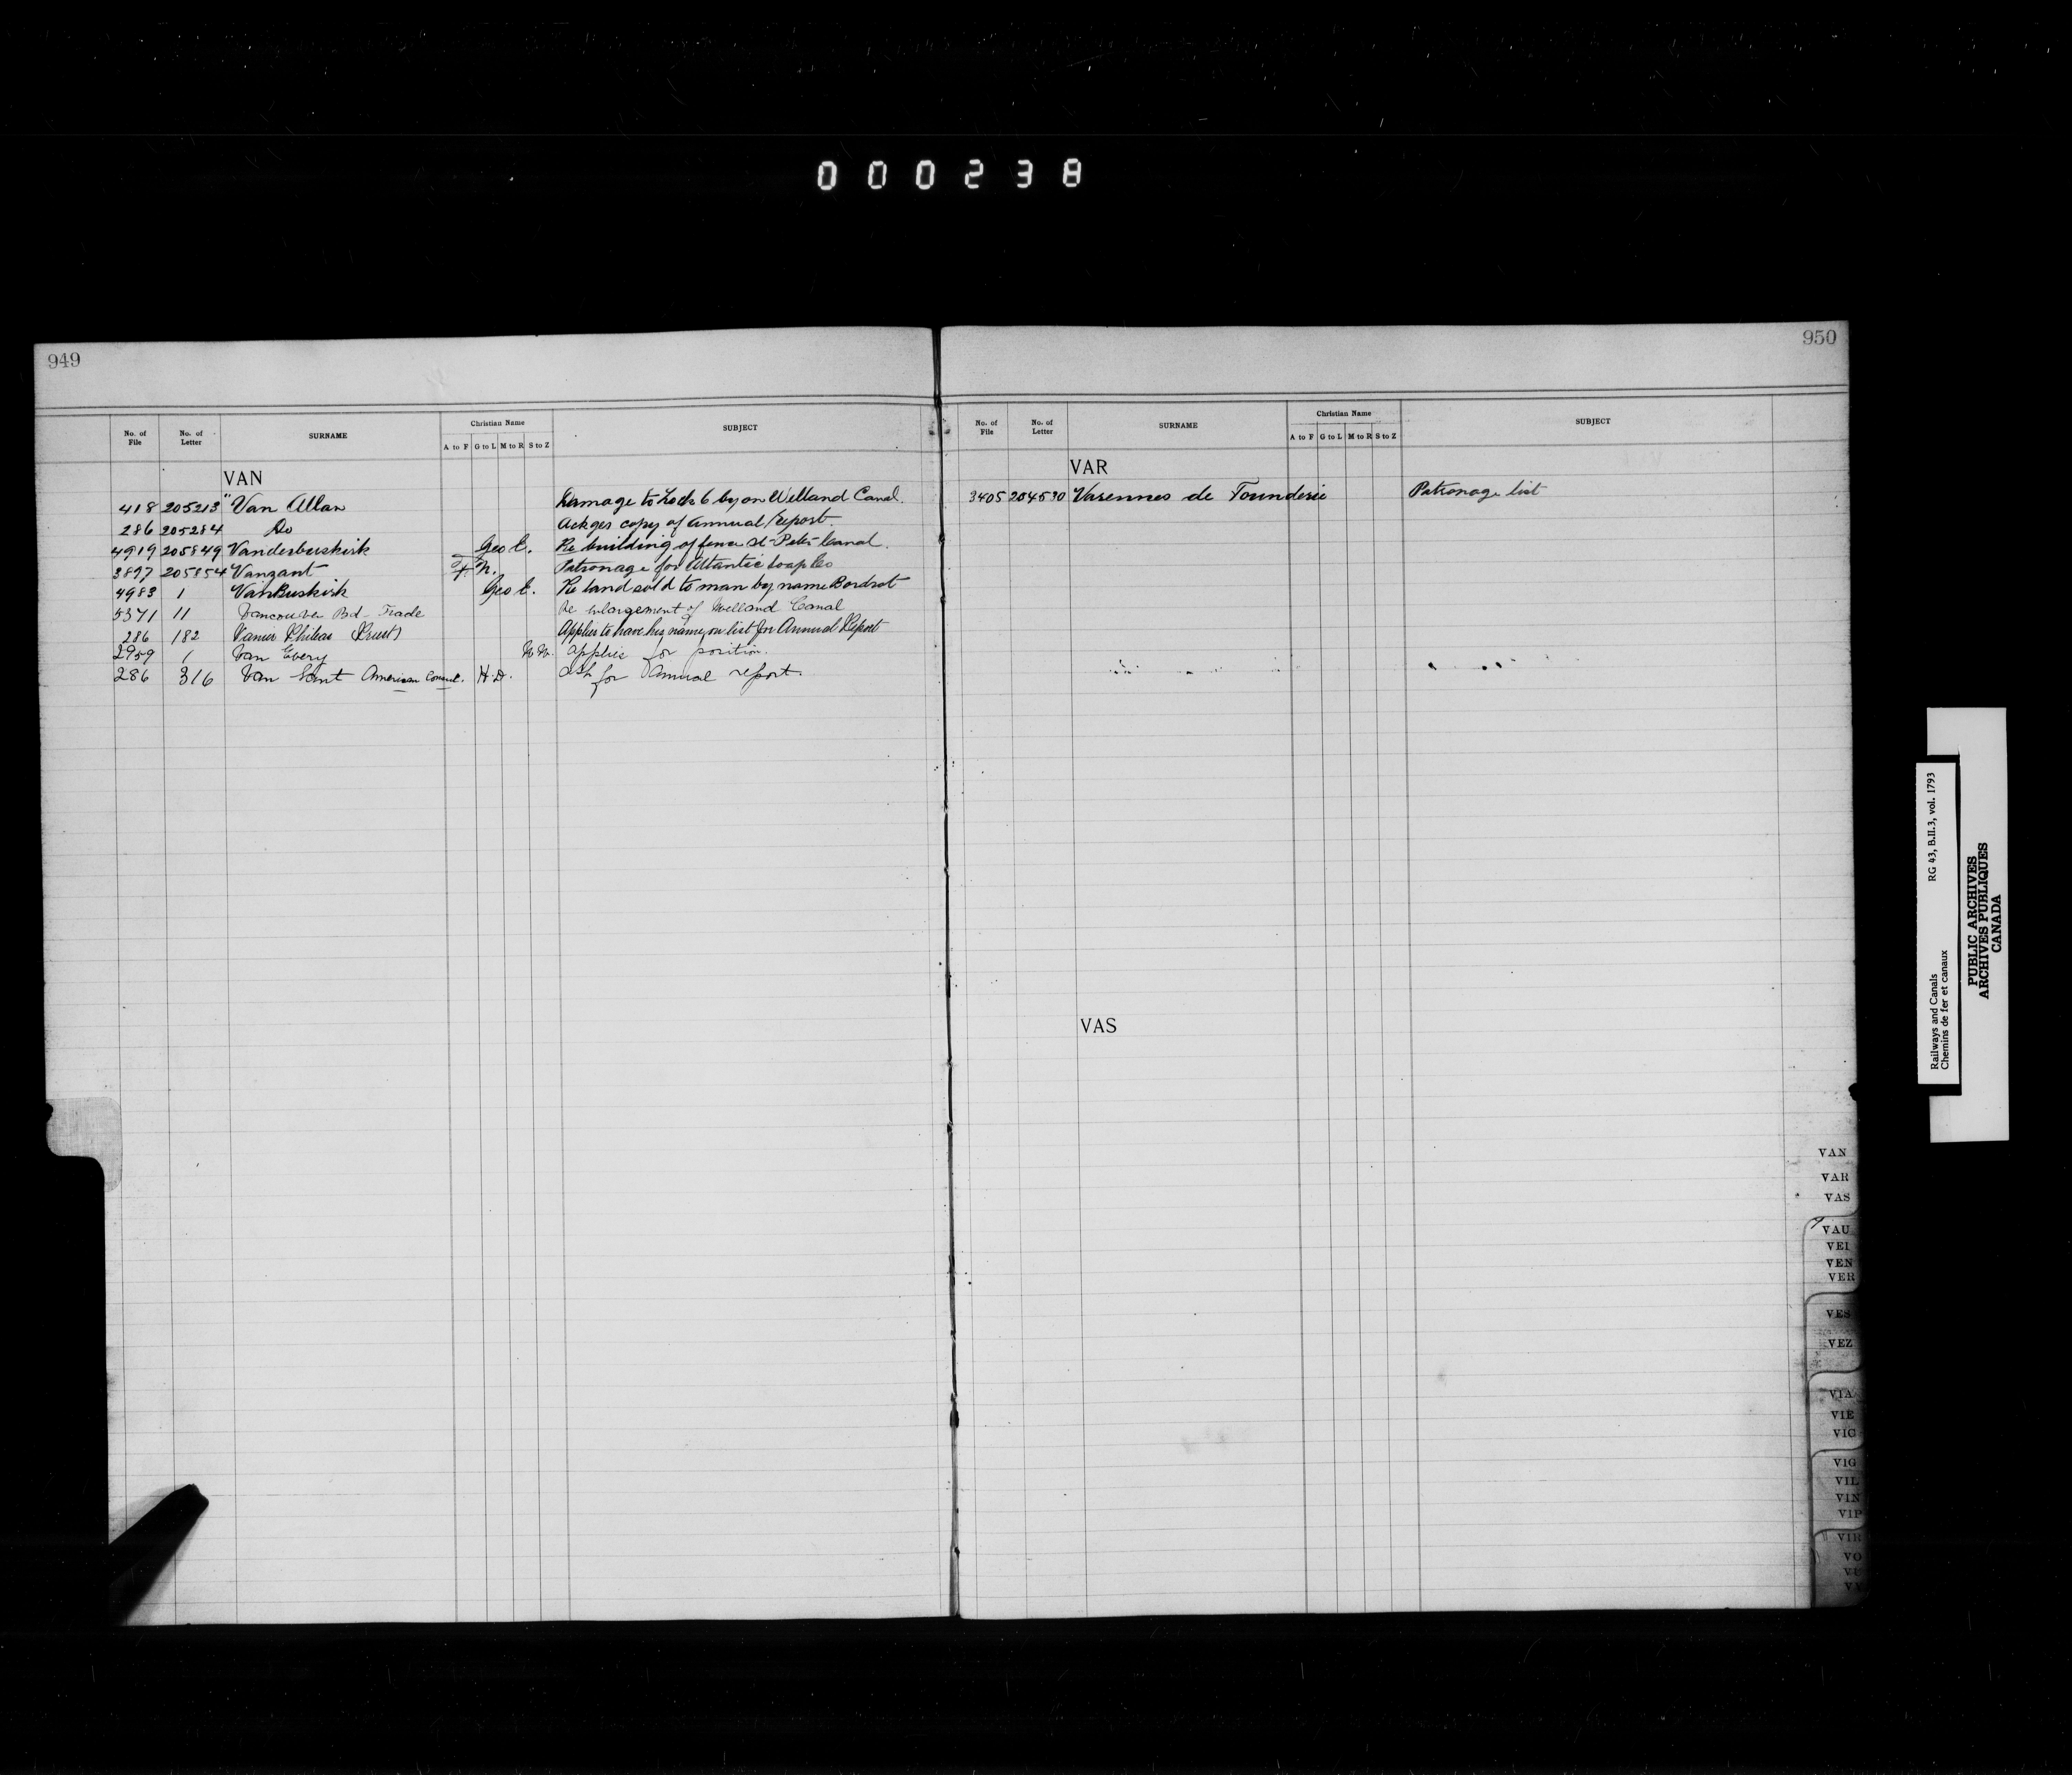 000238
949
No. of File No. of Letter SURNAME Christian Name A to F G to L M to R S to Z SUBJECT
VAN
418 205213 "Van Allan Damage to Lock 6 by on Welland Canal.
286 205284 Do Ackges copy of Annual Report.
4919 205849 Vanderbuskirk Geo E. Re building of fence St-Peters Canal.
3897 205854 Vanzant F. N. Patronage for Atlantic Soap Co
4983 1 VanBuskirk Geo E. Re land sold to man by name Bordrot
5371 11 Vancouver Bd Trade Re enlargement of Welland Canal
286 182 Vanier Philias Applies to have his name on list for Annual Report
2959 1 Van Every W. W. applies for position.
286 316 Van Sant American Consul. H. D. Ask for Annual report.
950
No. of File No. of Letter SURNAME Christian Name A to F G to L M to R S to Z SUBJECT
VAR
3405 204530 Varennes de Founderie Patronage list
VAS
VAN
VAR
VAS
VAU
VEI
VEN
VER
VES
VEZ
VIA
VIE
VIC
VIG
VIL
VIN
VIP
VIR
VO
VU
Railways and Canals RG 43, B.II.3, vol. 1793
Chemins de fer et canaux
PUBLIC ARCHIVES
ARCHIVES PUBLIQUES
CANADA